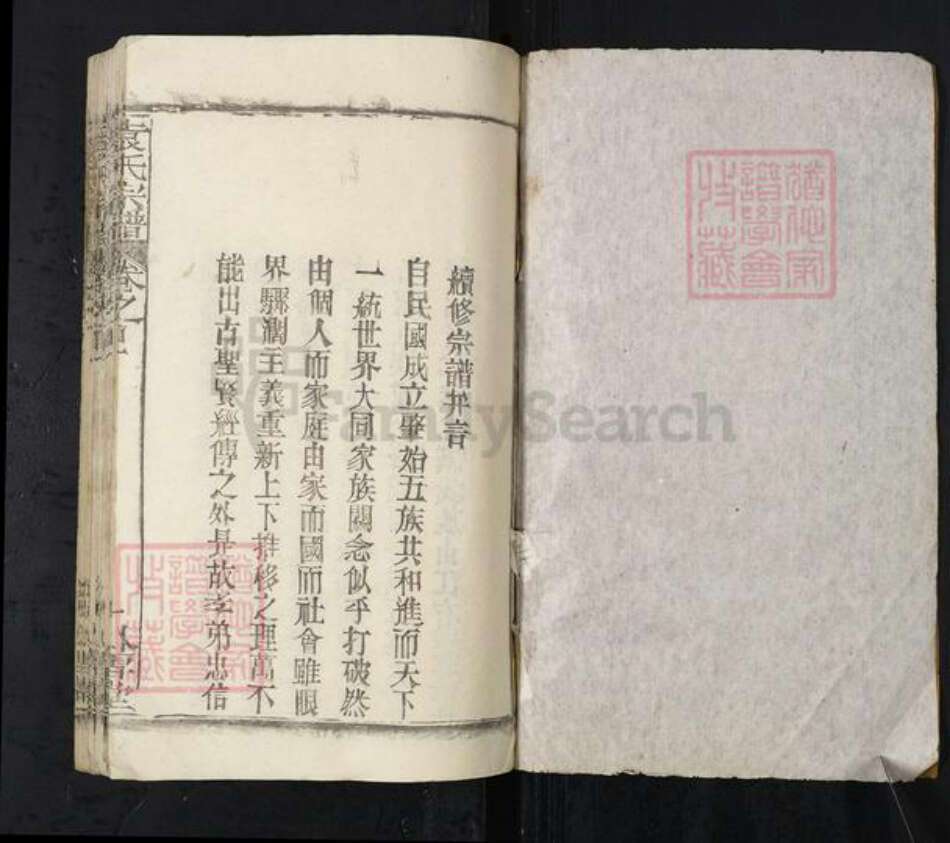 續修宗譜弁言
自民國成立肇始五族共和進而天下
一統世界大同家族關念似乎打破然
由個人而家庭由家而國而社會雖眼
界驟濶主義重新上下推移之理萬不
能出古聖賢經傳之外是故孝弟忠信
袁氏宗譜 卷之首
FamilySearch
譜學會
收藏